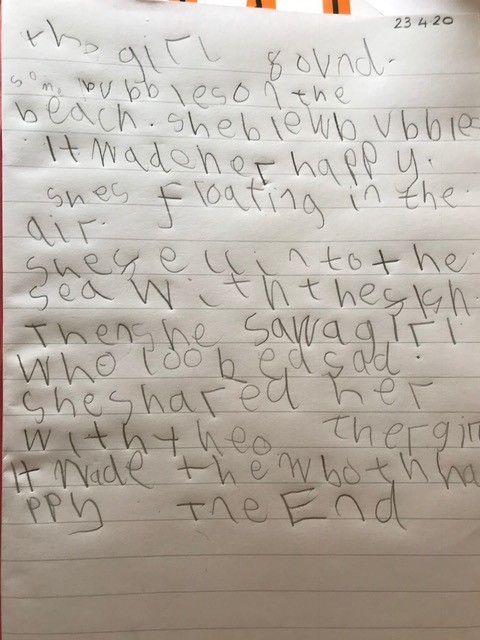 23 4 20
the girl gound.
som bubbles on the
beach. she blew bubble
It made her happy.
shes floating in the.
air.
she gell into the
sea with the gish.
then she saw a girl.
who loobed sad.
she shared her
with the o thergir
It made thew both ha
ppy The End